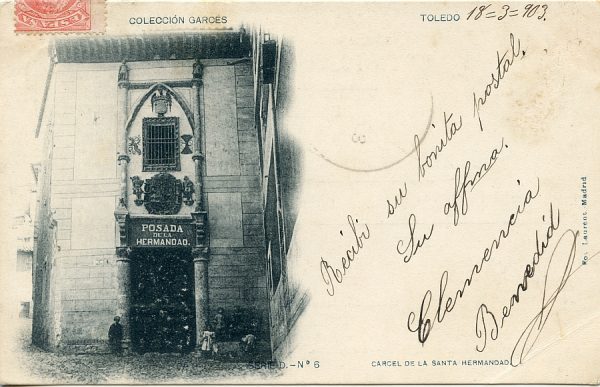 COLECCIÓN GARCÉS
TOLEDO 18=3=903.
POSADA
DE LA
HERMANDAD.
Recibi su bonita postal,
Su affma.
Clemencia
Benedid
Fot. Laurent. Madrid
SERIE D.-Nº 6
CARCEL DE LA SANTA HERMANDAD.